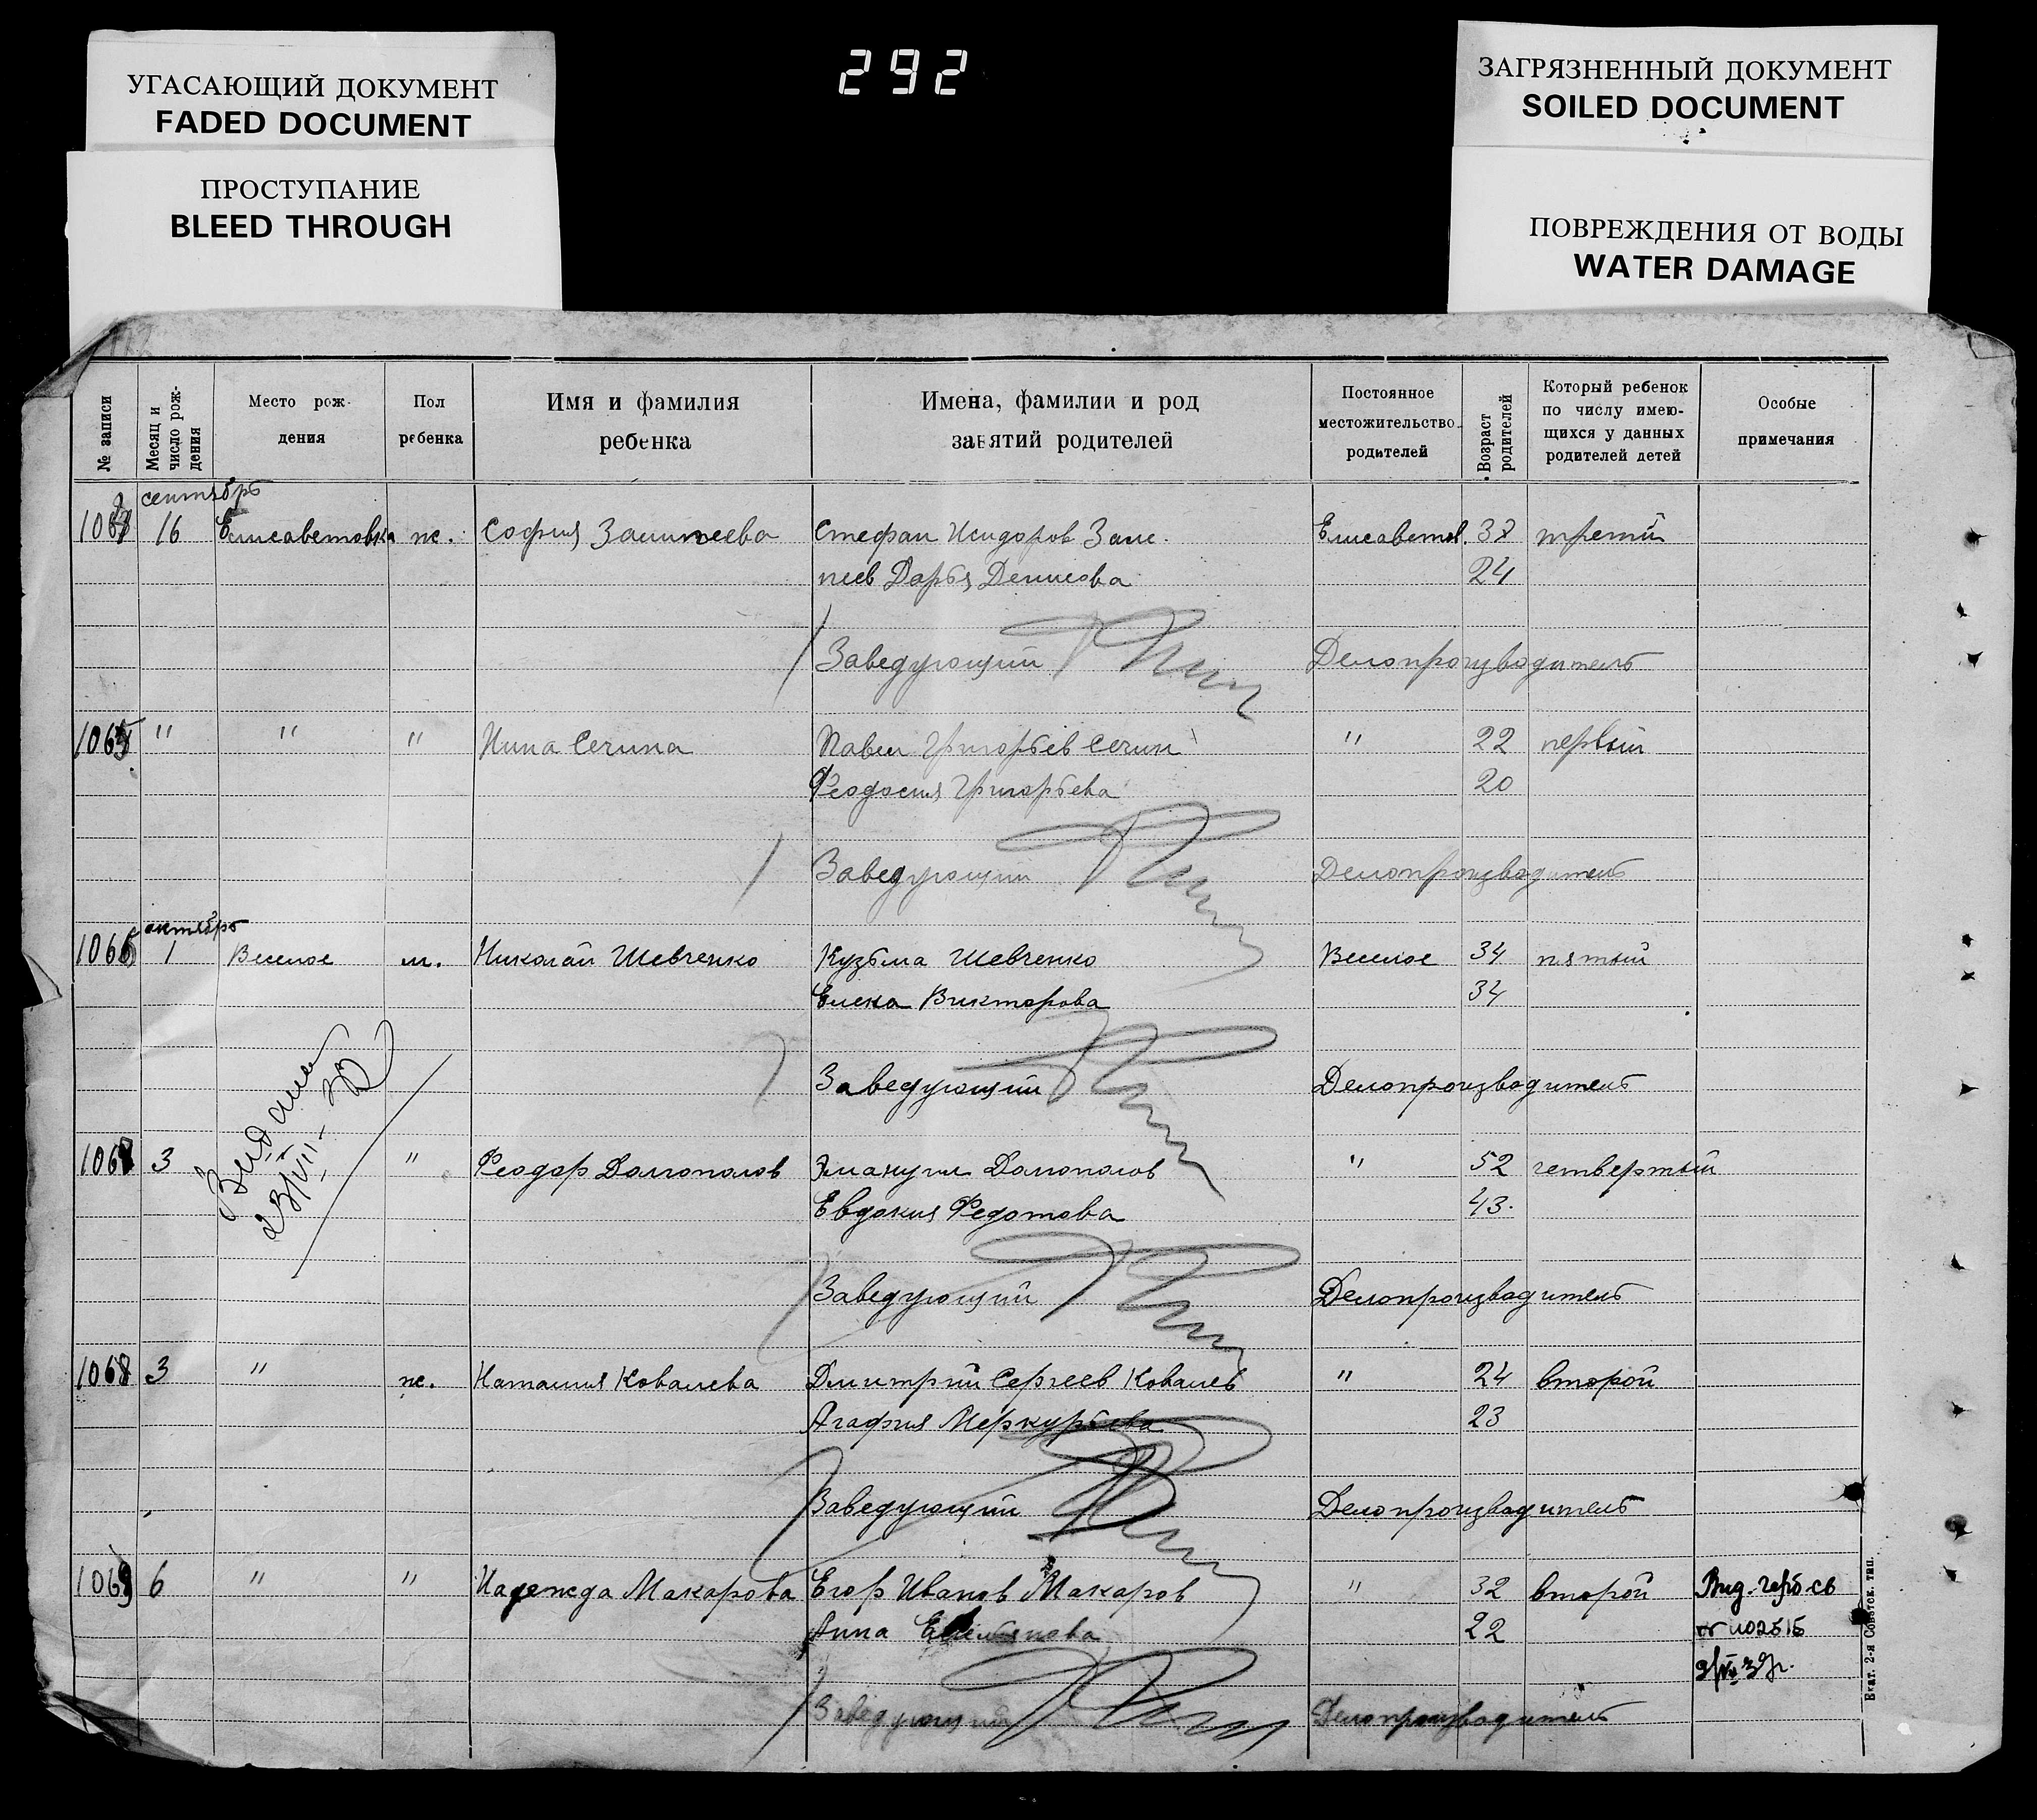 УГАСАЮЩИЙ ДОКУМЕНТ
FADED DOCUMENT
ПРОСТУПАНИЕ
BLEED THROUGH
292
ЗАГРЯЗНЕННЫЙ ДОКУМЕНТ
SOILED DOCUMENT
ПОВРЕЖДЕНИЯ ОТ ВОДЫ
WATER DAMAGE
№ записи
Месяц и число рож- дения
Место рож- дения
Пол ребенка
Имя и фамилия ребенка
Имена, фамилии и род занятий родителей
Постоянное местожительство родителей
Возраст родителей
Который ребенок по числу имею- щихся у данных родителей детей
Особые примечания
сентябрь
16 Елисаветовка ж. София Стефан Исидоров Елисаветов. третий
Дарья Денисова 24
Заведующий Делопроизводитель
1065 " " " Нина Сечина Павел Григорьев Сечин " 22 первый
Феодосия Григорьева 20
Заведующий Делопроизводитель
октябрь
1066 1 Веселое м. Николай Шевченко Кузьма Шевченко Веселое 34 пятый
Елена Викторова 34
Заведующий Делопроизводитель
1067 3 " Феодор Долгополов Эмануил Долгополов " 52 четвертый
Евдокия Федотова 43.
Заведующий Делопроизводитель
1068 3 " ж. Наталия Ковалева Дмитрий Сергеев Ковалев " 24 второй
Агафия Меркурьева 23
Заведующий Делопроизводитель
1069 6 " " Надежда Макарова Егор Иванов Макаров " 32 второй
Анна Емельянова 22
Заведующий Делопроизводитель
Екат. 2-я Советск. тип.